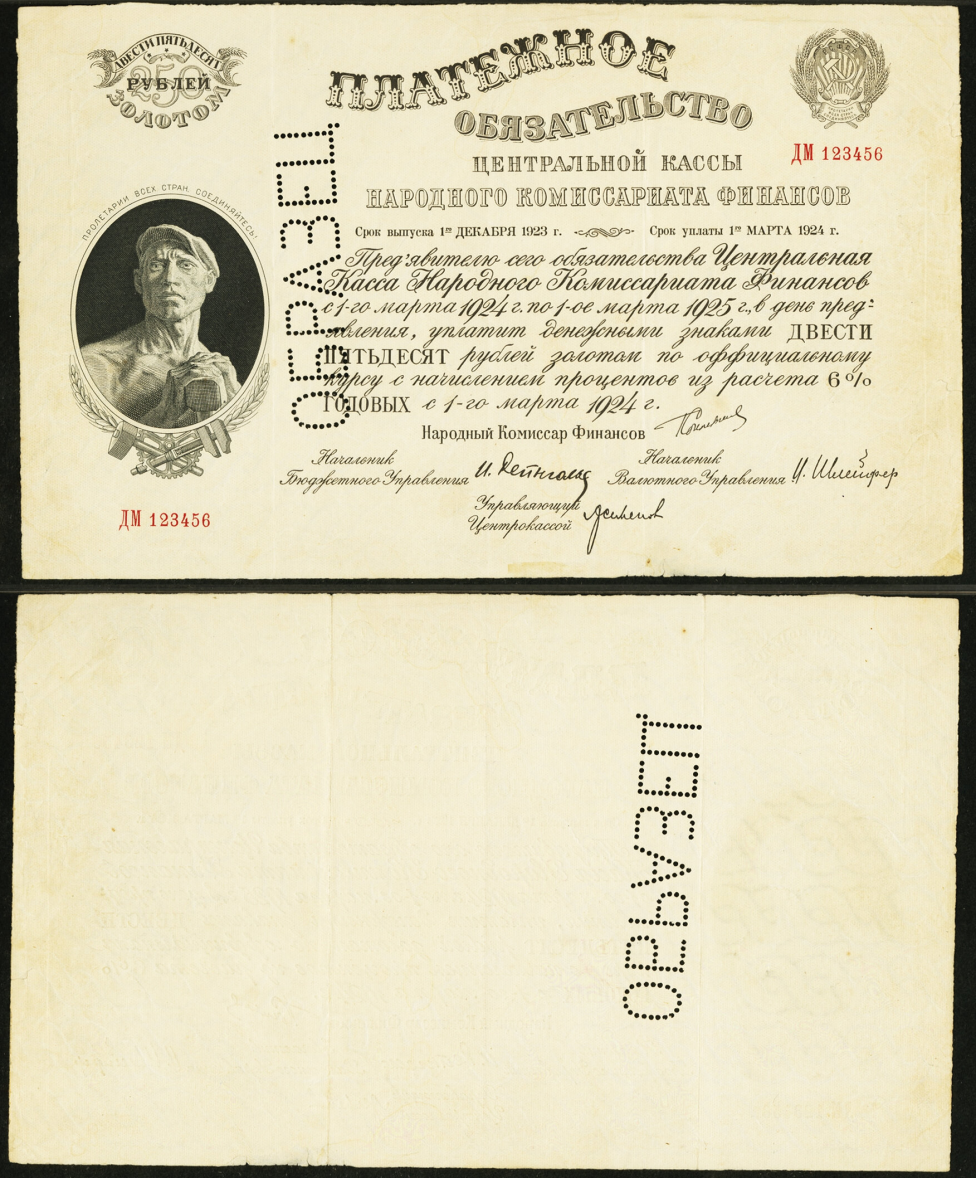 ДВЕСТИ ПЯТЬДЕСЯТ
250
РУБЛЕЙ
ЗОЛОТОМ
ПЛАТЕЖНОЕ
ОБЯЗАТЕЛЬСТВО
ЦЕНТРАЛЬНОЙ КАССЫ
НАРОДНОГО КОМИССАРИАТА ФИНАНСОВ
ДМ 123456
Срок выпуска 1го ДЕКАБРЯ 1923 г. Срок уплаты 1го МАРТА 1924 г.
ПРОЛЕТАРИИ ВСЕХ СТРАН, СОЕДИНЯЙТЕСЬ!
ОБРАЗЕЦ
Пред'явителю сего обязательства Центральная
Касса Народного Комиссариата Финансов
с 1-го марта 1924 г. по 1-ое марта 1925 г., в день пред-
явления, уплатит денежными знаками ДВЕСТИ
ПЯТЬДЕСЯТ рублей золотом по оффициальному
курсу с начислением процентов из расчета 6%
ГОДОВЫХ с 1-го марта 1924 г.
Народный Комиссар Финансов
Началеник
Бюджетного Управления
Началеник
Валютного Управления
Управляющий
Центрокассой
ДМ 123456
ОБРАЗЕЦ